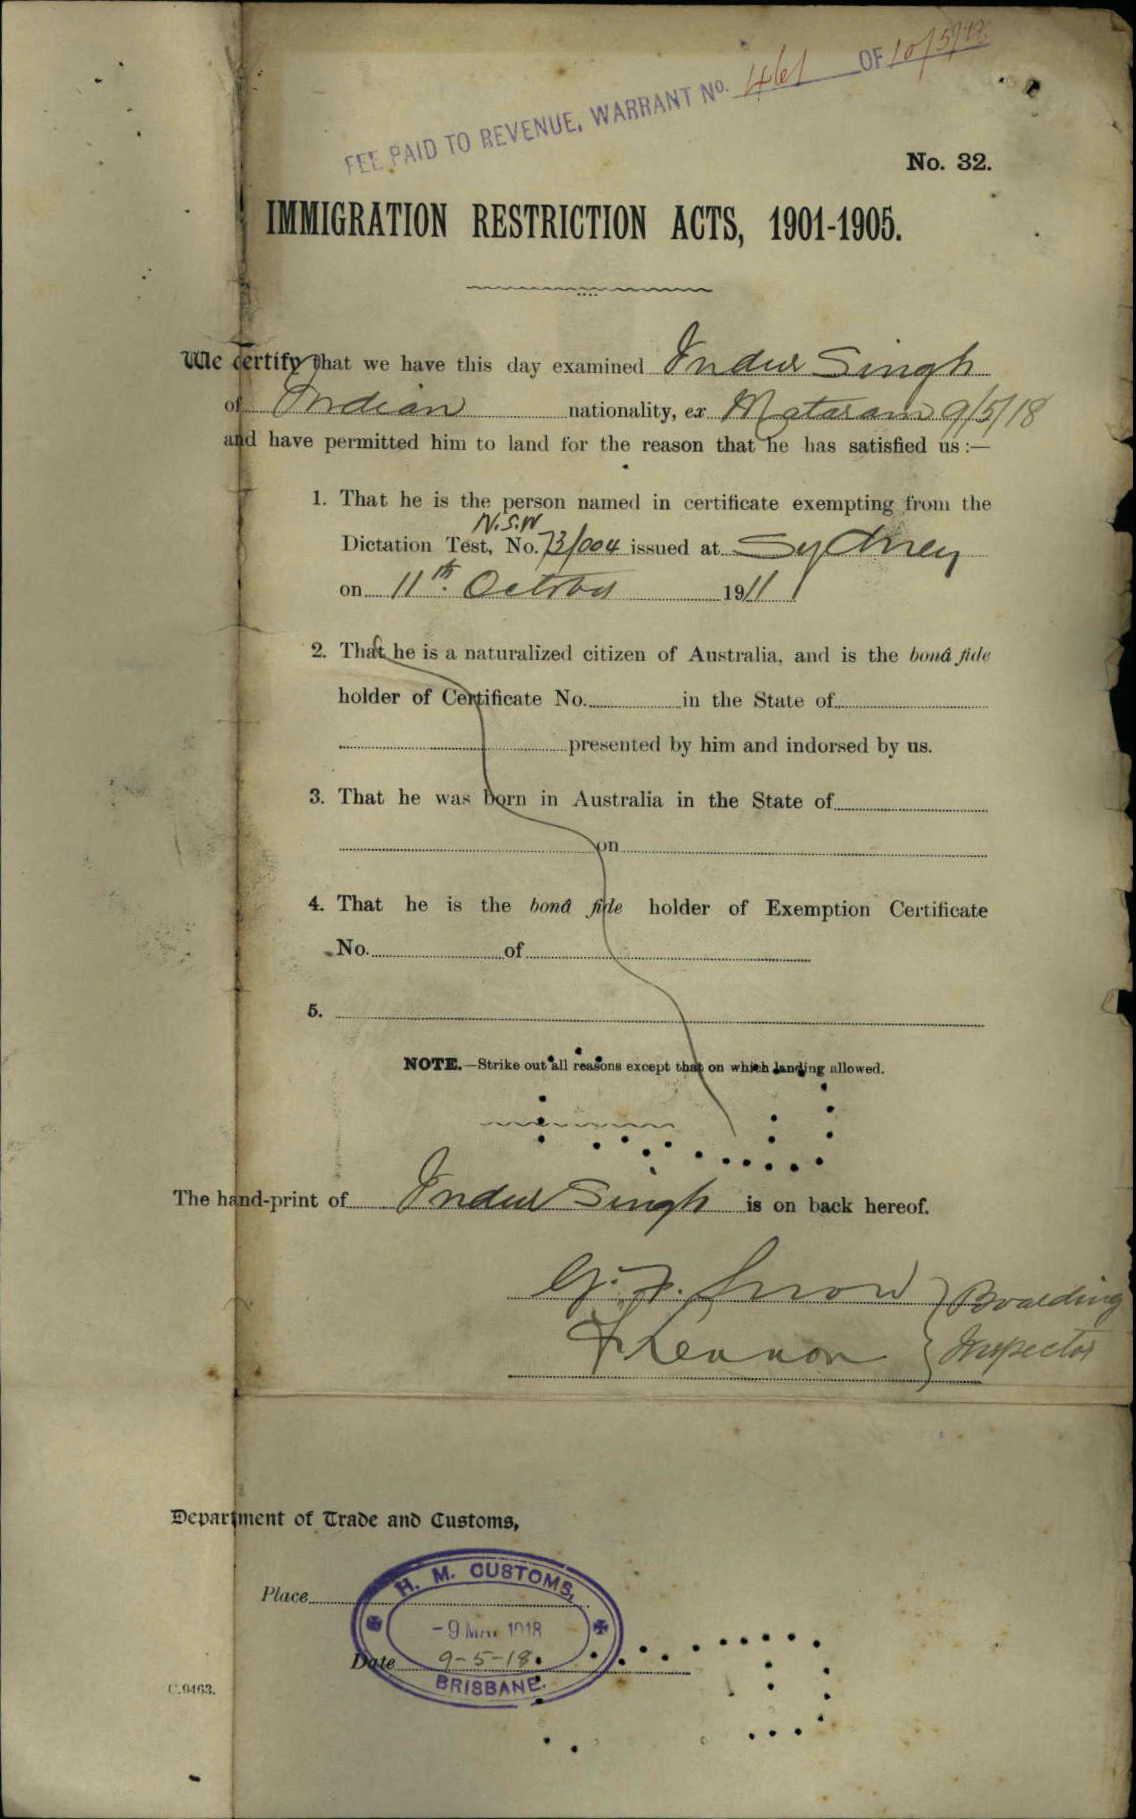 FEE PAID TO REVENUE, WARRANT No. 461 OF 10/5/18
No. 32.
IMMIGRATION RESTRICTION ACTS, 1901-1905.
We certify that we have this day examined Indur Singh
of Indian nationality, ex Mataram 9/5/18
and have permitted him to land for the reason that he has satisfied us:—
1. That he is the person named in certificate exempting from the
N.S.W
Dictation Test, No. 73/004 issued at Sydney
on 11th October 1911
2. That he is a naturalized citizen of Australia, and is the bonâ fide
holder of Certificate No. in the State of
presented by him and indorsed by us.
3. That he was born in Australia in the State of
on
4. That he is the bonâ fide holder of Exemption Certificate
No. of
5.
NOTE.—Strike out all reasons except that on which landing allowed.
The hand-print of Indur Singh is on back hereof.
G. F. Snow Boarding
F Lennon Inspector
Department of Trade and Customs,
H. M. CUSTOMS,
Place
-9 MAY 1918
Date 9-5-18.
BRISBANE.
C.9463.